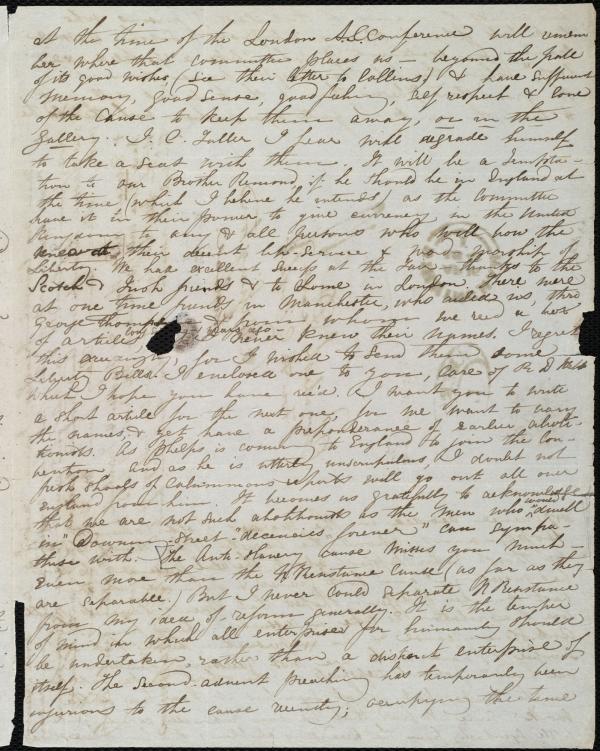 at the time of the London A.S. Conference will remem
ber where that committee places us — beyond the pall
of its good wishes (see their letter to Collins) & have sufficient
memory, good sense, good feeling, self respect & love
of the Cause to keep them away, or in the
Gallery. J. C. Fuller I fear will degrade himself
to take a seat with them. It will be a tempta-
tion to our Brother Remond if he should be in England at
the time (which I believe he intends) as the Committee
have it in their power to give currency in the United
Kingdom to any & all persons who will vow the
their decent lip-service & word worship of
Liberty. We had excellent sweeps at the Fair — thanks to the
Scotch & Irish friends & to some in London. There were
at one time friends in Manchester, who aided us, thro'
George Thompson & from whom we rec'd a box
of articles years ago — never knew their names. I regret
this for I wished to send them some
Liberty Bells. I enclosed one to you, care of R D Webb
which I hope you have rec'd. I want you to write
a short article for the next one, for we want to vary
the names, & yet have a preponderance of earlier aboli-
tionists. As Phelps is coming to England to join the Con-
vention and as he is utterly unscrupulous, I doubt not
fresh shoals of calumnious reports will go out all over
England from him. It becomes us gratefully to acknowledge
that we are not such abolitionists as the men who would "dwell
in "Downing-street-decencies forever" can sympa-
thise with. The Anti-slavery cause misses you much —
even more than the N Resistance cause (as far as they
are separable.) But I never could separate N Resistance
from my idea of reform generally. It is the temper
of mind in which all enterprises for humanity should
be undertaken, rather than a distinct enterprise of
itself. The second-advent preaching has temporarily been
injurious to the cause recently; occupying the same